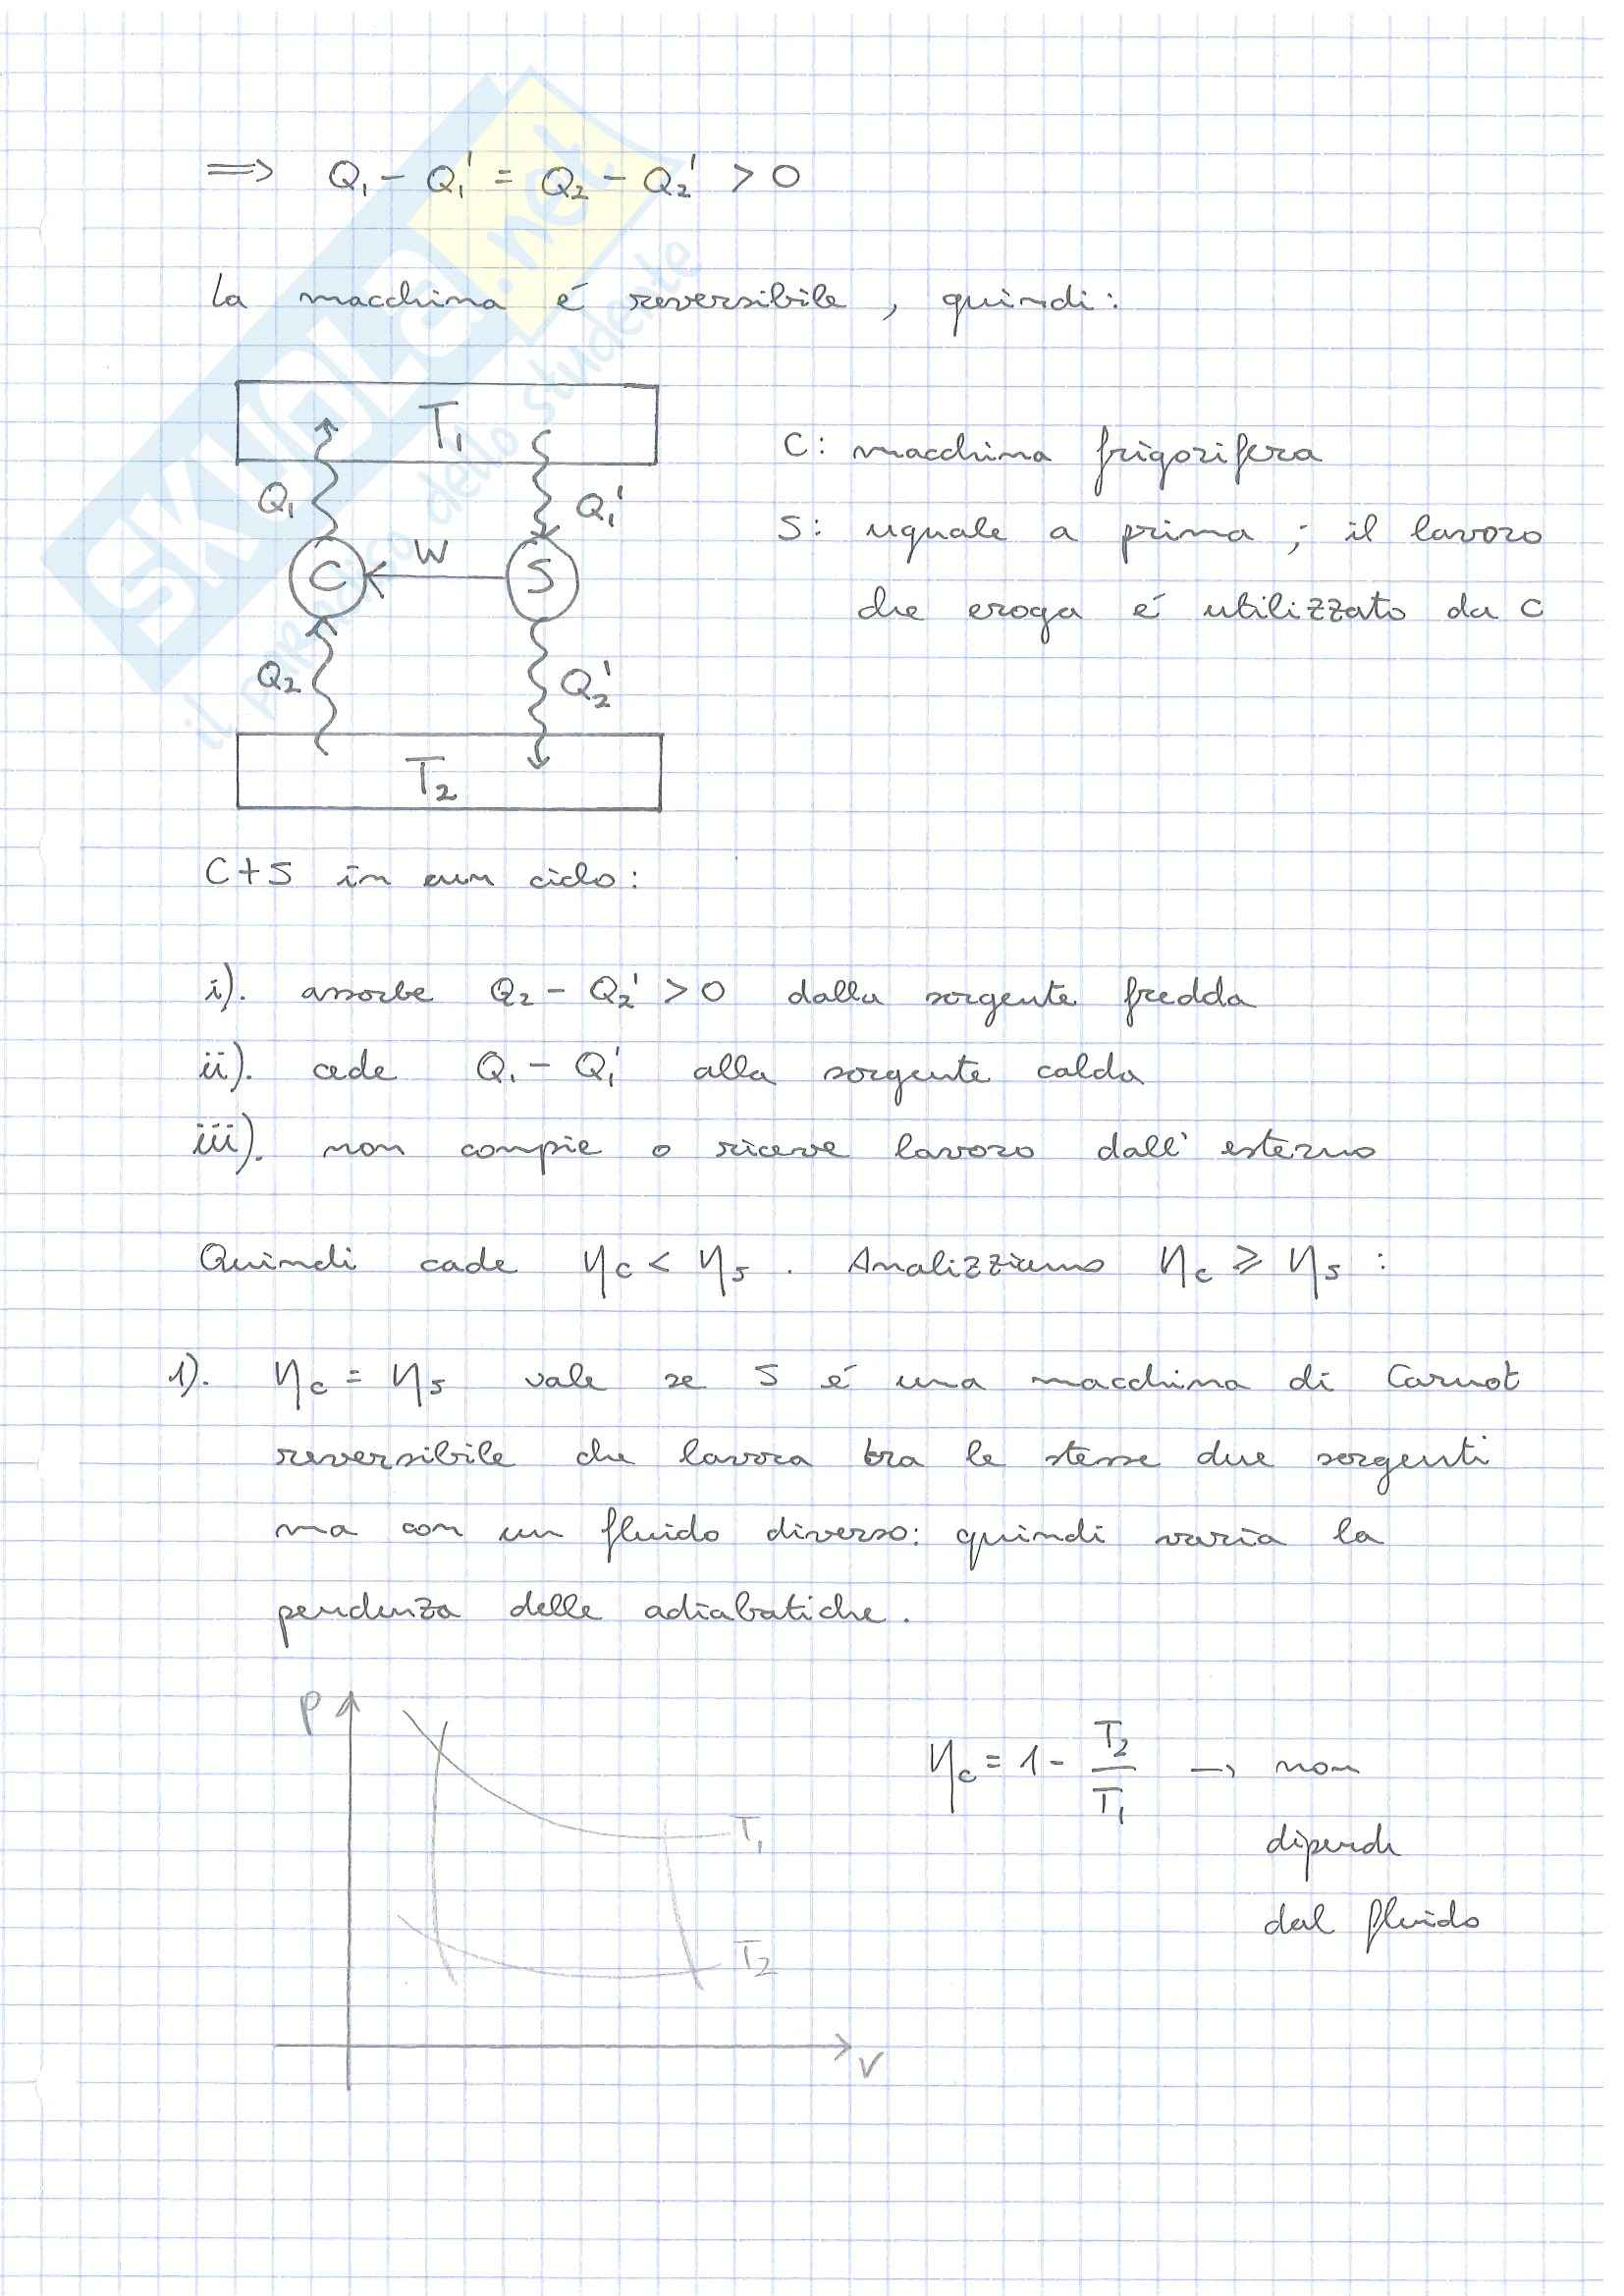 ⇒ Q₁ - Q₁' = Q₂ - Q₂' > 0
la macchina é reversibile, quindi:
T₁
C: macchina frigorifera
Q₁ Q₁'
S: uguale a prima; il lavoro
C W S
che eroga é utilizzato da C
Q₂ Q₂'
T₂
C+S in un ciclo:
i). assorbe Q₂ - Q₂' > 0 dalla sorgente fredda
ii). cede Q₁ - Q₁' alla sorgente calda
iii). non compie o riceve lavoro dall'esterno
Quindi cade ηc < ηs. Analizziamo ηc ⩾ ηs:
1). ηc = ηs vale se S é una macchina di Carnot
reversibile che lavora tra le stesse due sorgenti
ma con un fluido diverso: quindi varia la
pendenza delle adiabatiche.
P
ηc = 1 - T₂/T₁ → non
T₁
dipende
dal fluido
T₂
V
SKUOLA.net
il paradiso dello studente